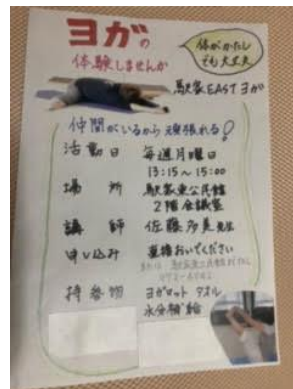 ヨガの
体験しませんか
体がかたくても大丈夫
駅家EASTヨガ
仲間がいるから頑張れる!
活動日 毎週月曜日
13:15~15:00
場所 駅家東公民館
2階会議室
講師 佐藤多美先生
申し込み 直接おいでください
または 駅家東公民館
持参物 ヨガマット タオル
水分補給